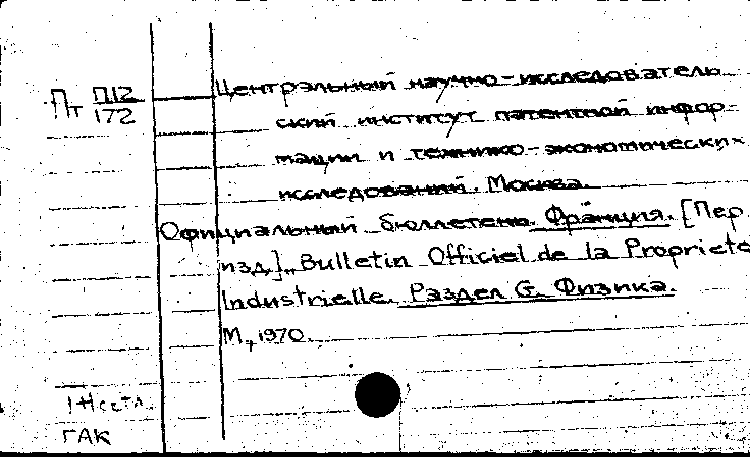 Пт П12
172
Центральный научно-исследователь
ский институт патентной инфор-
мации и технико-экономических
исследований. Москва.
Официальный бюллетень. Франция. [Пер.
изд.] „Bulletin Officiel de la Propriete
Industrielle. Раздел G. Физика.
М., 1970.
ГАК